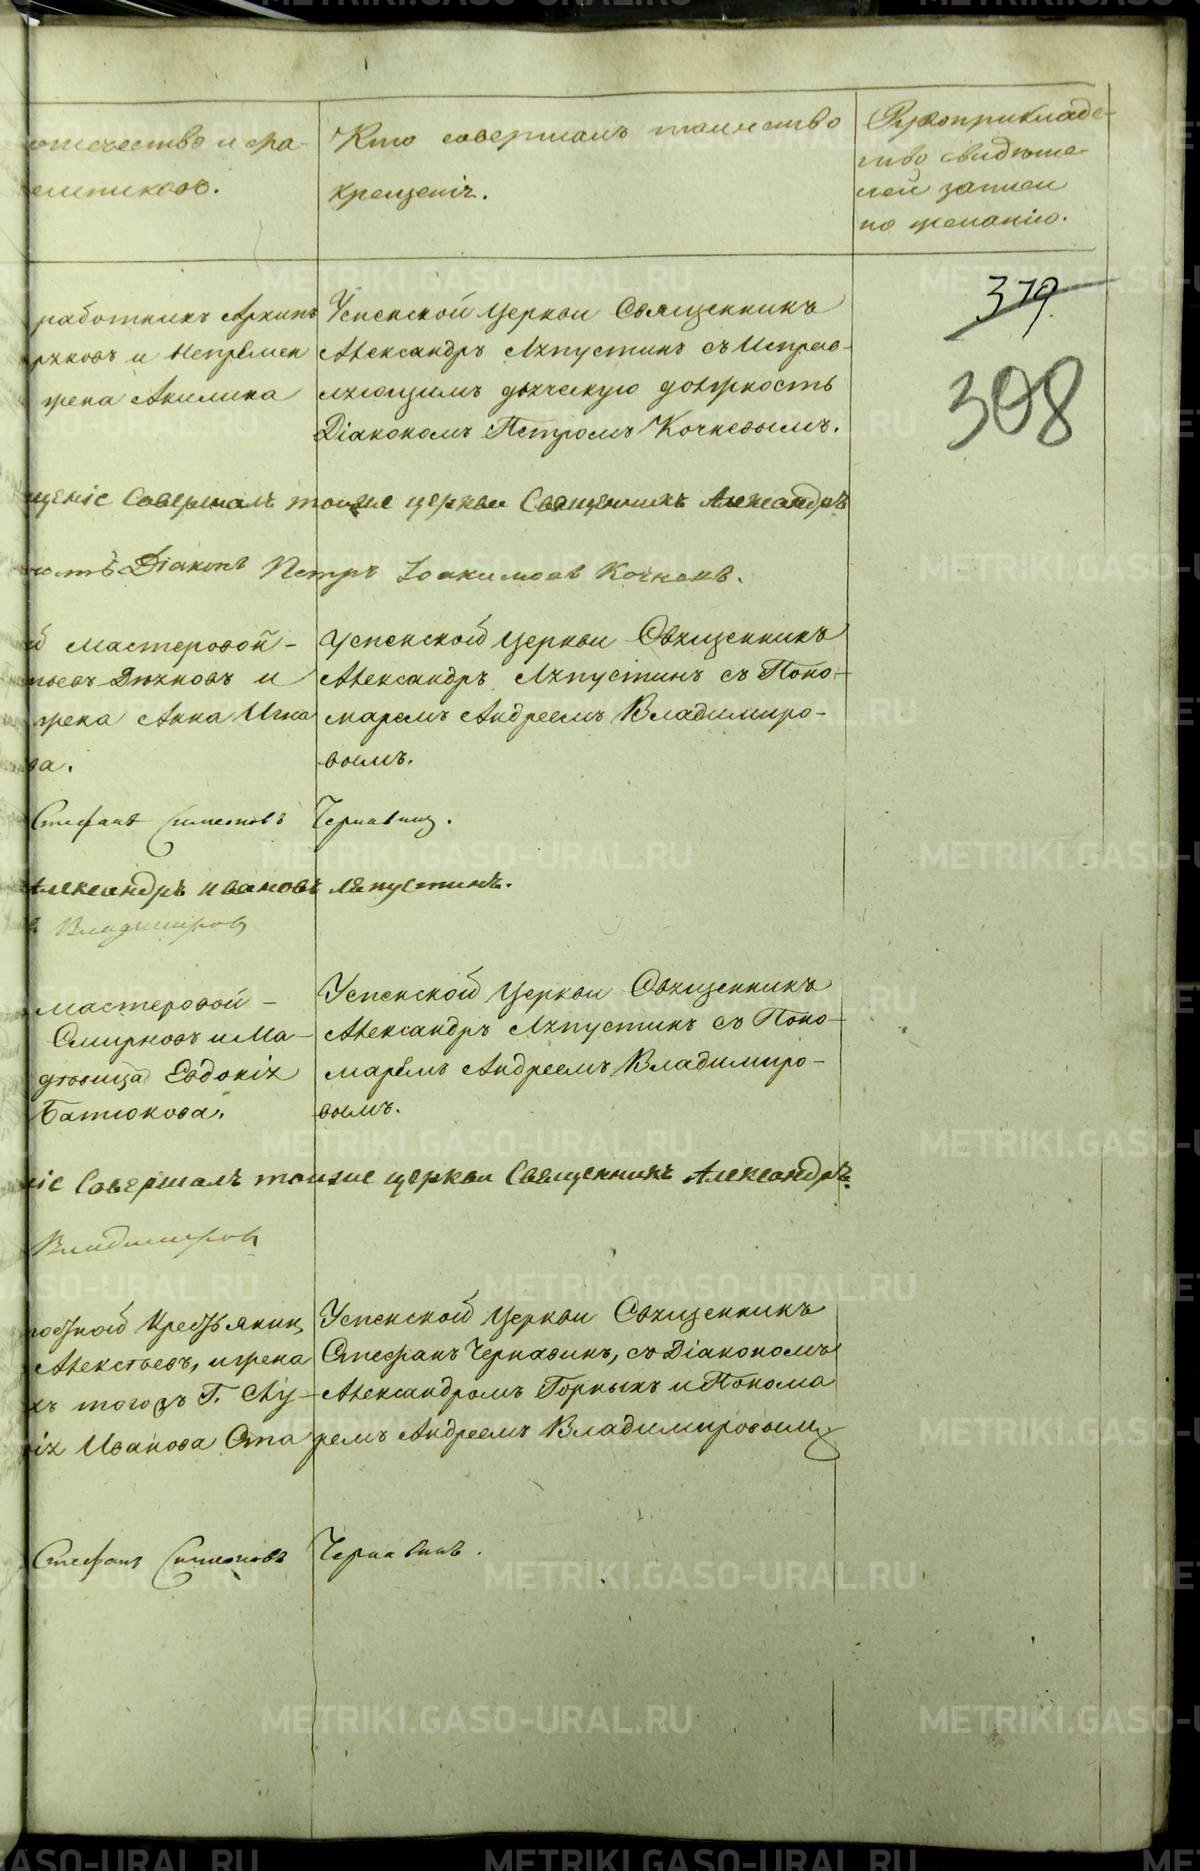 отечество и фа-
Кто совершалъ таинство
крещенія.
Рукоприкладс-
тво свидѣте-
лей записи
по желанію.
379.
398
работникъ Архипъ
и Непремен
жена Акилина
Успенской Церкви Священникъ
Александръ Ляпустинъ съ Исправ-
ляющимъ дьяческую должность
Діакономъ Петромъ Кочневымъ.
щеніе Совершалъ тоиже церкви Священникъ Александръ
Діаконъ Петръ Іоакимовъ Кочневъ.
мастеровой-
Дюковъ и
жена Анна Игна
ва.
Успенской Церкви Священникъ
Александръ Ляпустинъ съ Поно-
маремъ Андреемъ Владимиро-
вымъ.
Стефанъ Симеоновъ Чернавинъ.
Александръ Ивановъ Ляпустинъ.
Владимировъ
мастеровой-
Смирновъ и Ма-
дѣвица Евдокія
Батюкова.
Успенской Церкви Священникъ
Александръ Ляпустинъ съ Поно-
маремъ Андреемъ Владимиро-
вымъ.
ніе Совершалъ тоиже церкви Священникъ Александръ
Владимировъ
Крестьянинъ
Алексѣевъ, и жена
Г. Ау-
ія Иванова
Успенской Церкви Священникъ
Стефанъ Чернавинъ, съ Діакономъ
Александромъ Горныхъ и Понома
ремъ Андреемъ Владимировымъ
Стефанъ Симеоновъ Чернавинъ.
METRIKI.GASO-URAL.RU